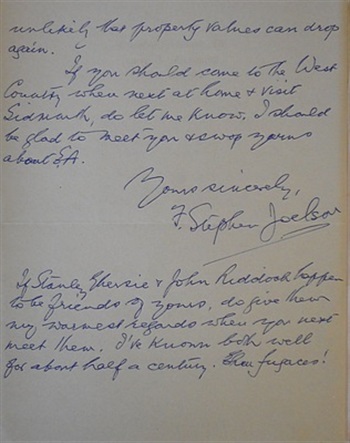 unlikely that property values can drop
again.
If you should come to the West
Country when next at home & visit
Sidmouth, do let me know. I should
be glad to meet you & swop yarns
about E.A.
Yours sincerely,
F. Stephen Joelson
If Stanley Ghersie & John Riddoch happen
to be friends of yours, do give them
my warmest regards when you next
meet them. I've known both well
for about half a century. Eheu fugaces!